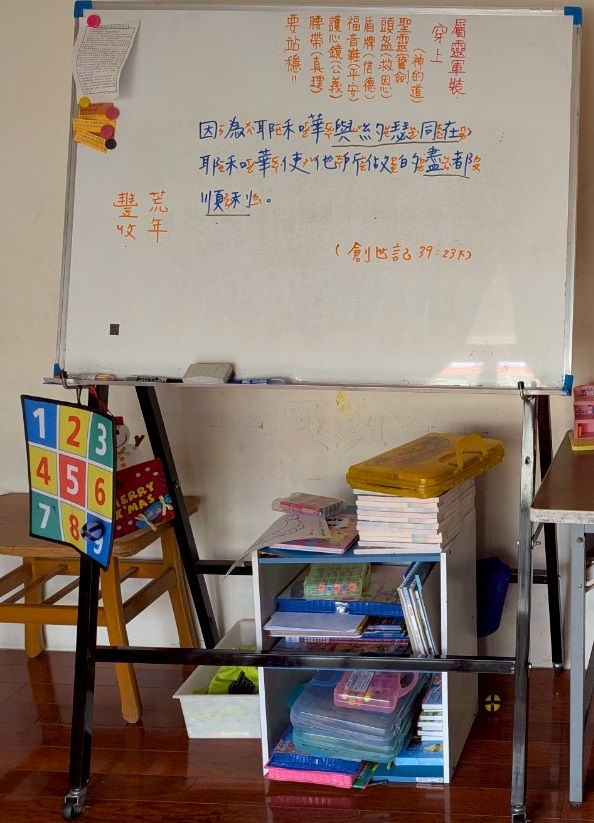 屬靈軍裝
穿上
(神的道)
聖靈(寶劍
頭盔(救恩)
盾牌(信德)
福音鞋(平安)
護心鏡(公義)
腰帶(真理)
要站穩!!
因為耶和華與約瑟同在,
耶和華使他所做的盡都
順利。
荒年
豐收
(創世記 39:23下)
1 2 3
4 5 6
7 8 9
MERRY
X'MAS